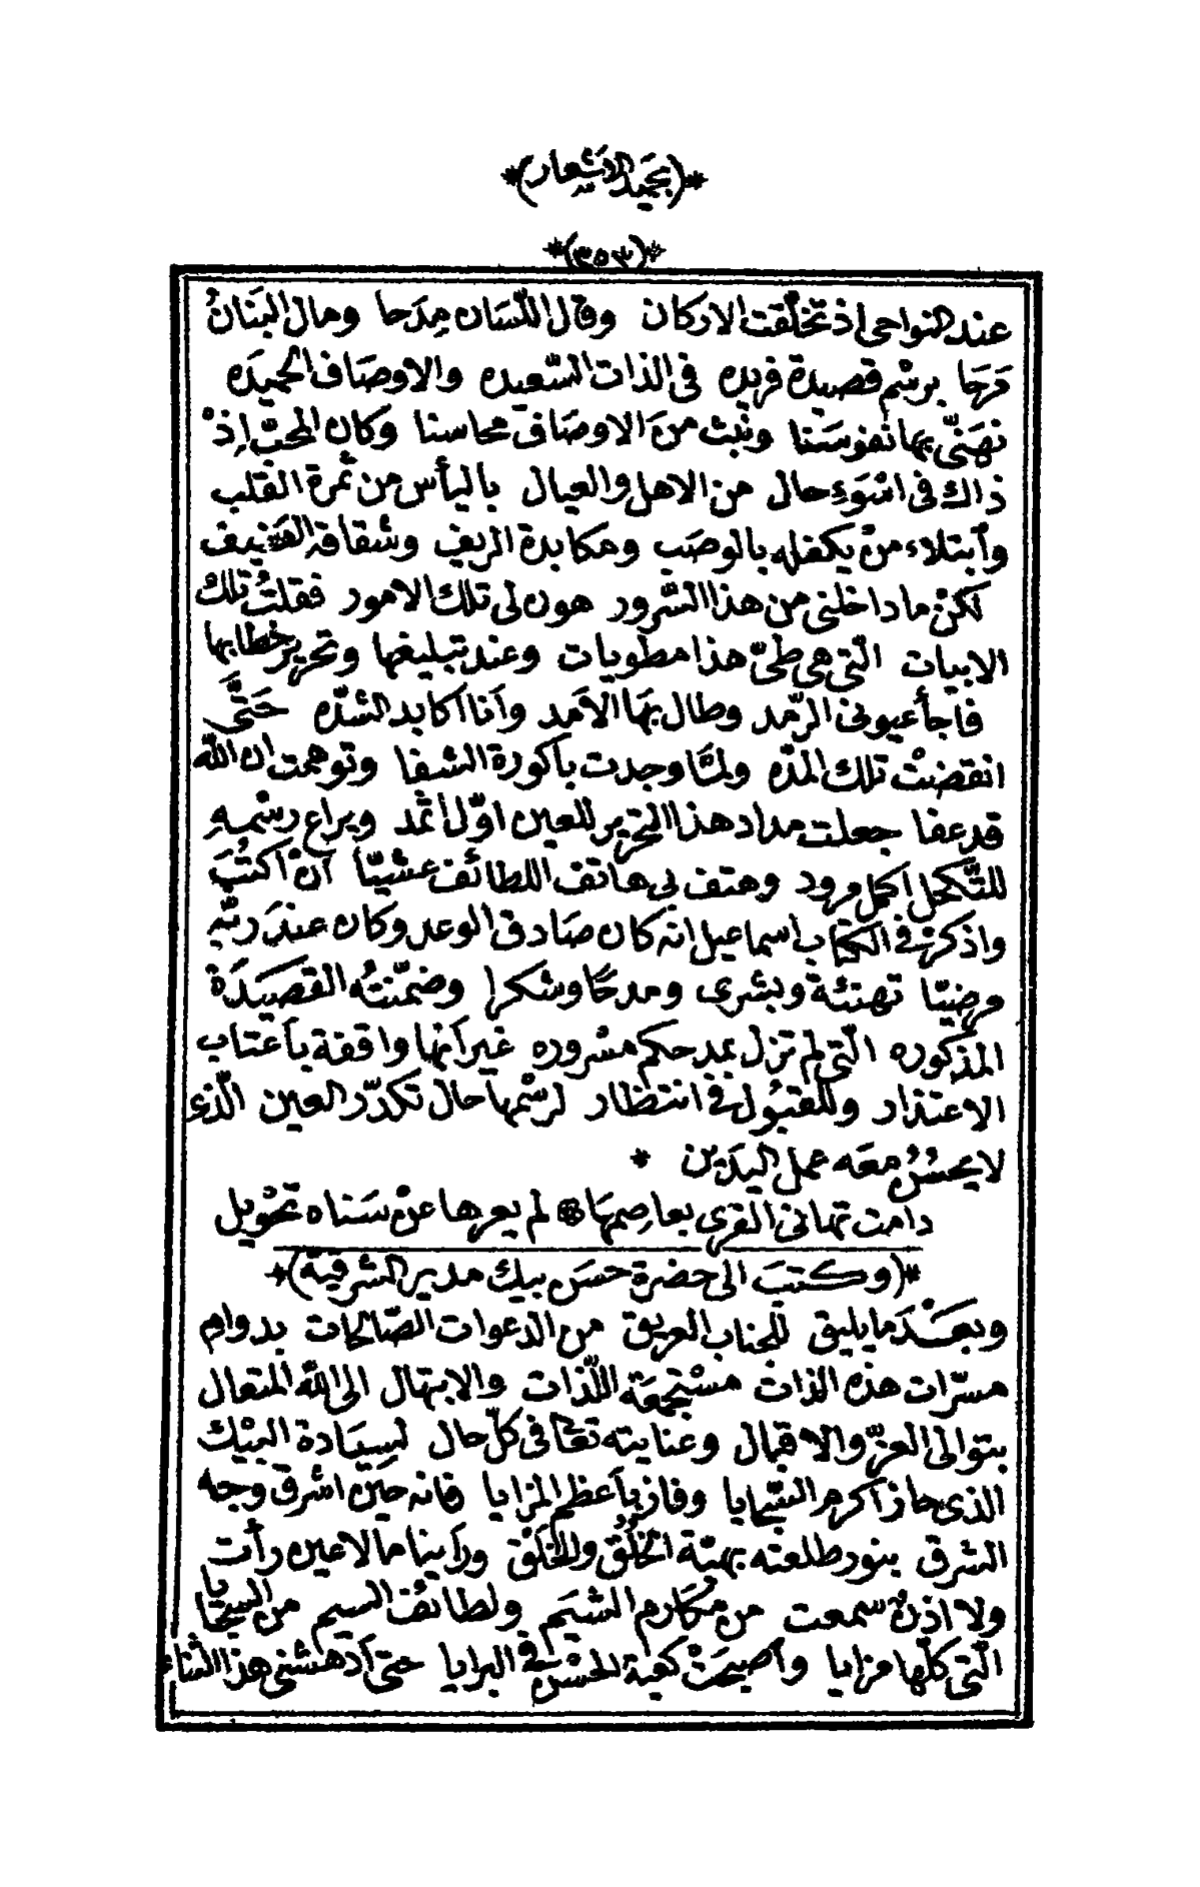 *(بحميد الاشعار)*
*(٣٥٣)*
عند النواحى اذ تخلّقت الاركان وقال اللّسان مِدَحا ومال البَنانُ
مَرَحَا برسْم قصيدة فريده فى الذات السّعيده والاوصَاف الحميدَه
نهَنّى بها نفوسَنا ونبث منَ الاوصَاف محاسنا وكان المحبّ اِذْ
ذاك فى اسْوَءِ حال من الاهل والعيال باليأس من ثمرة القلب
وأبتلاء منْ يكفله بالوصَب ومكابدة الريف وشقاقه العنيف
لكنْ ما داخلنى من هذا السّرور هون لى تلك الامور فقلتُ تلكْ
الابيات الّتى هى طىّ هذا مطويات وعند تبليغها وتحرير خطابها
فاجأ عيونى الرّمد وطال بهَا الاَمد وأنا اكابد الشدّه حَتَّى
انقضتْ تلك المدّه ولمّا وجدت باكورة الشفا وتوهمت ان اللّه
قد عفا جعلت مداد هذا التحرير للعين اوّل اثمد ويراع رسْمِه
للتّكحل اكمل مرود وهتف بى هاتف اللطائف عشيّا أنْ اكتُبَ
واذكر فى الكتاب اسماعيل انه كان صَادق الوعد وكان عندَ ربّه
مرضيّا تهنئة وبشرى ومدحًا وشكرا وضمّنتُه القصَيدَة
المذكوره الّتى لم تزل بمدحكم مسْروره غير أنها واقفة بأعتاب
الاعتذار وللقبُول فى انتظار لرسْمها حال تكدّر العين الّذى
لا يحسُنُ معَه عمل اليدَين *
دامت تهانى القرى بعاصِمهَا * لم يعرها عنْ سَناه تحْويل
*(وكتبَ الى حضرة حسَن بيك مدير الشرقية)*
وبعَــْد ما يليق للجناب العريق من الدعوات الصّالحات بدوام
مسرّات هذه الذات مستجمعَة اللّذات والابتهال الى اللّه المتعال
بتوالى العزّ والاقبال وعنايته تعا فى كلّ حال لسِيَادة البيْك
الذى حاز اكرم السّجايا وفاز بأعظم المزايا فانه حين اشرق وجه
الشرق بنور طلعته بهيّة الخُلُق والخَلْق ورأينا ما لا عين رأت
ولا اذنٌ سمعت من مكَارم الشيَم ولطائف السيم من السجايا
الّتى كلّها مزايا وأصبحَتْ كعبة الحسْن فى البرايا حتى أدهشنى هذا الثناء